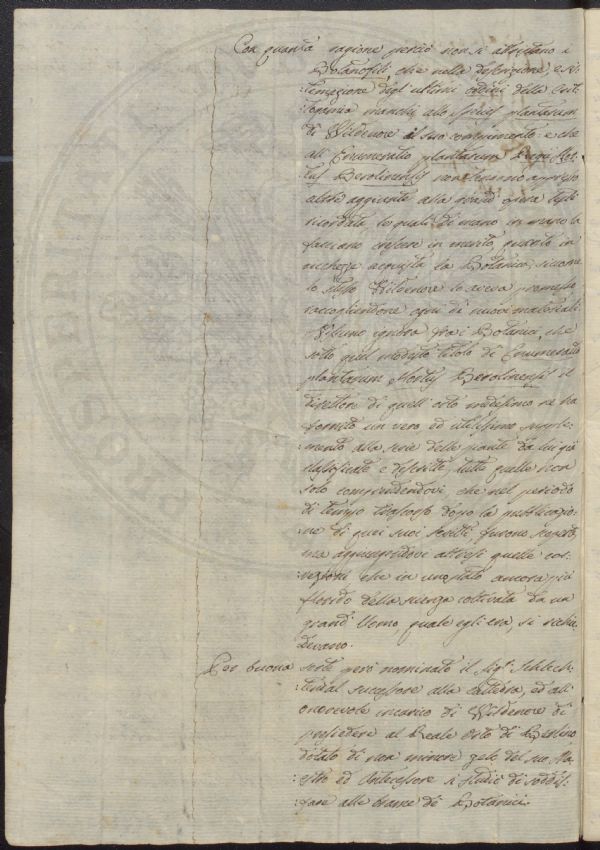 Con quanta ragione perciò non si attristano i
Botanofili, che nella descrizione, e si-
:stemazione degl'ultimi ordini della Crit-
:togamia manchi allo Species plantarum
di Wildenow il suo compimento: e che
all'Enumeratio plantarum Regii Hor-
:tus Berolinensis non si
altre aggiunte alla grand'opera
ricordata le quali di mano in mano la
facciano crescere in merito, quanto in
ricchezze acquista la Botanica, siccome
lo stesso Wildenow lo aveva promesso
raccogliendone ogni dì nuovi materiali.
Niuno ignora fra i Botanici, che
sotto quel modesto titolo di Enumeratio
plantarum Horti Berolinensis il
direttore di quell'orto medesimo ne ha
fornito un vero ed utilissimo supple-
:mento alla serie delle piante da lui già
classificate e descritte, tutte quelle non
solo comprendendovi, che nel periodo
di tempo trascorso dopo la pubblicazio-
:ne di quei suoi scritti furono scoperte,
ma aggiungendovi altresì quelle cor-
:rezioni che in uno stato ancora più
florido della scienza coltivata da un
grand'Uomo, quale egli era, si richie-
:devano.
Per buona sorte però nominato il Sig.r Schlech-
:tendal successore alla cattedra, ed all'
onorevole incarico di Wildenow di
presiedere al Reale Orto di Berlino
dotato di non minore zelo del suo Ma-
:estro ed Antecessore si studiò di soddis-
:fare alle brame de' Botanici.